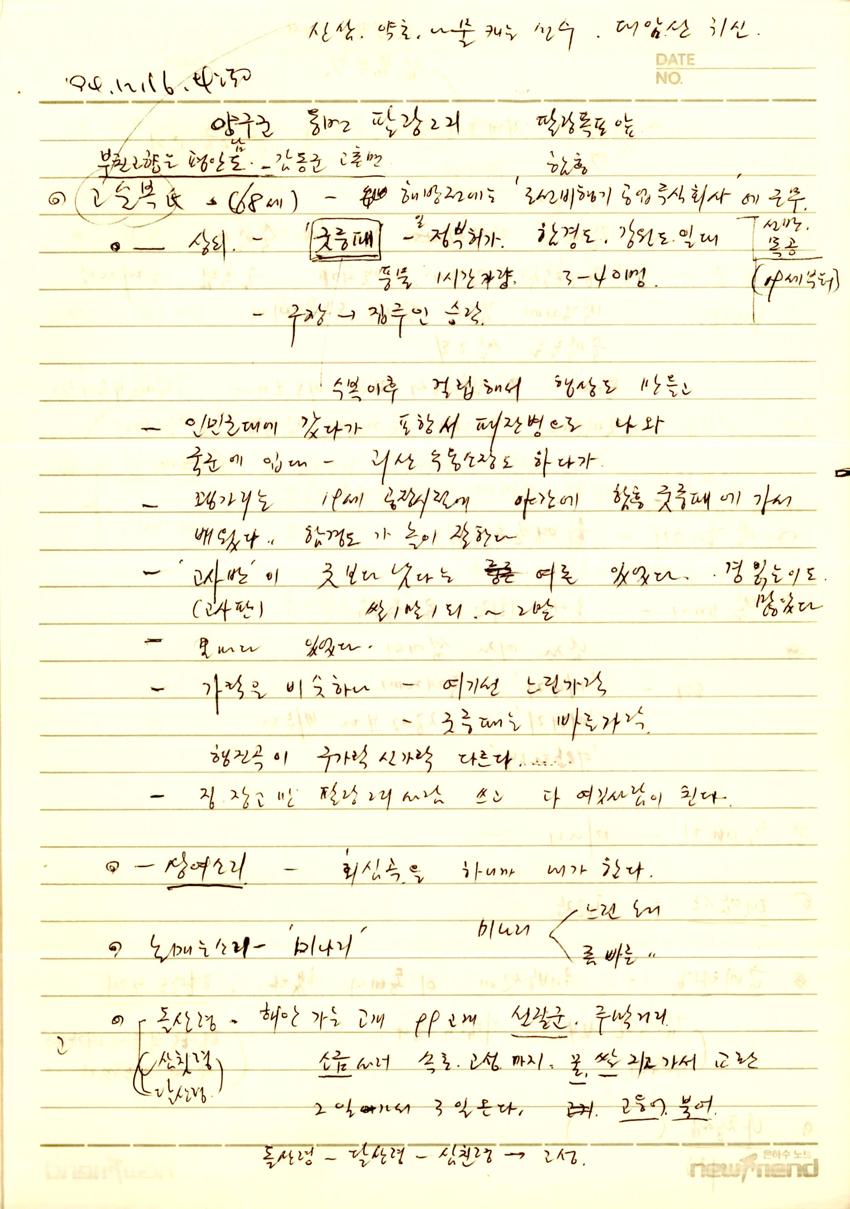 산삼. 약초, 나물 캐는 선수. 대암산 귀신.
DATE
NO.
'94.12.16.
양구군 동면 팔랑2리 팔랑폭포 앞
부친고향은 평안남도. - 강동군 고훈면 함흥
(68세) - 해방전에는 '조선비행기공업주식회사'에 근무.
- 상쇠. - '굿중패' - 정부허가. 함경도, 강원도 일대
선반. 목공
(19세부터)
풍물 1시간가량. 3-40이명.
- 구장 → 집주인 승락.
수복이후 걸립해서 행상도 만들고
- 인민군대에 갔다가 포항서 패잔병으로 나와
국군에 입대 - 하다가.
- 꽹가리는 19세 공장시절에 야간에 함흥 굿중패에 가서
배웠다. 함경도가 놀이 잘한다
- '고사반'이 굿보다 낫다는 여론 있었다. 경 읽는이도 많았다
(고사판) 쌀1말1되. ~ 2말
- 있었다.
- 가락은 비슷하나 - 여기선 느린가락
- 굿중패는 빠른가락.
행진곡이 구가락 신가락 다르다......
- 징 장고만 팔랑2리사람 쓰고 다 여깃사람이 친다.
- 상여소리 - 회심곡을 하니까 내가 한다.
논매는소리 - '미나리' 미나리 느린 소리
빠른 〃
돌산령 - 해안 가는 고개 99고개 주막거리.
(삼칫령
달산령)
고
소금 사러 속초. 고성까지. 꿀, 쌀 지고가서 교환
2일 가서 3일온다, 고등어, 북어.
돌산령 - 달산령 - 삼칫령 → 고성.
은하수 노트
newfriend